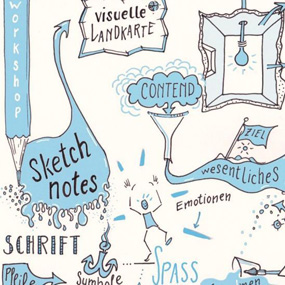 workshop
visuelle
LANDKARTE
CONTEND
ZIEL
wesentliches
Sketch
notes
Emotionen
SCHRIFT
Pfeile
Symbole
SPASS